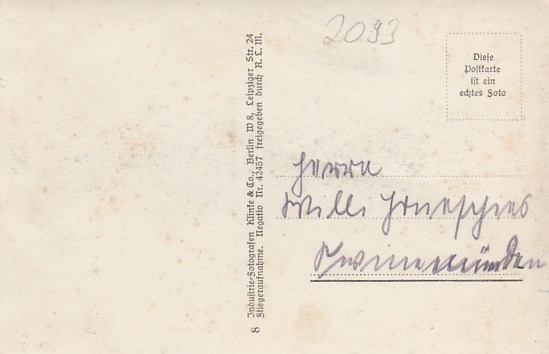 2093
Diese
Postkarte
ist ein
echtes Foto
Industrie-Fotografen Klinke & Co., Berlin W 8, Leipziger Str. 24
Fliegeraufnahme. Negativ Nr. 42457 freigegeben durch R. L. M.
8
Herrn
Willi
Swinemünden